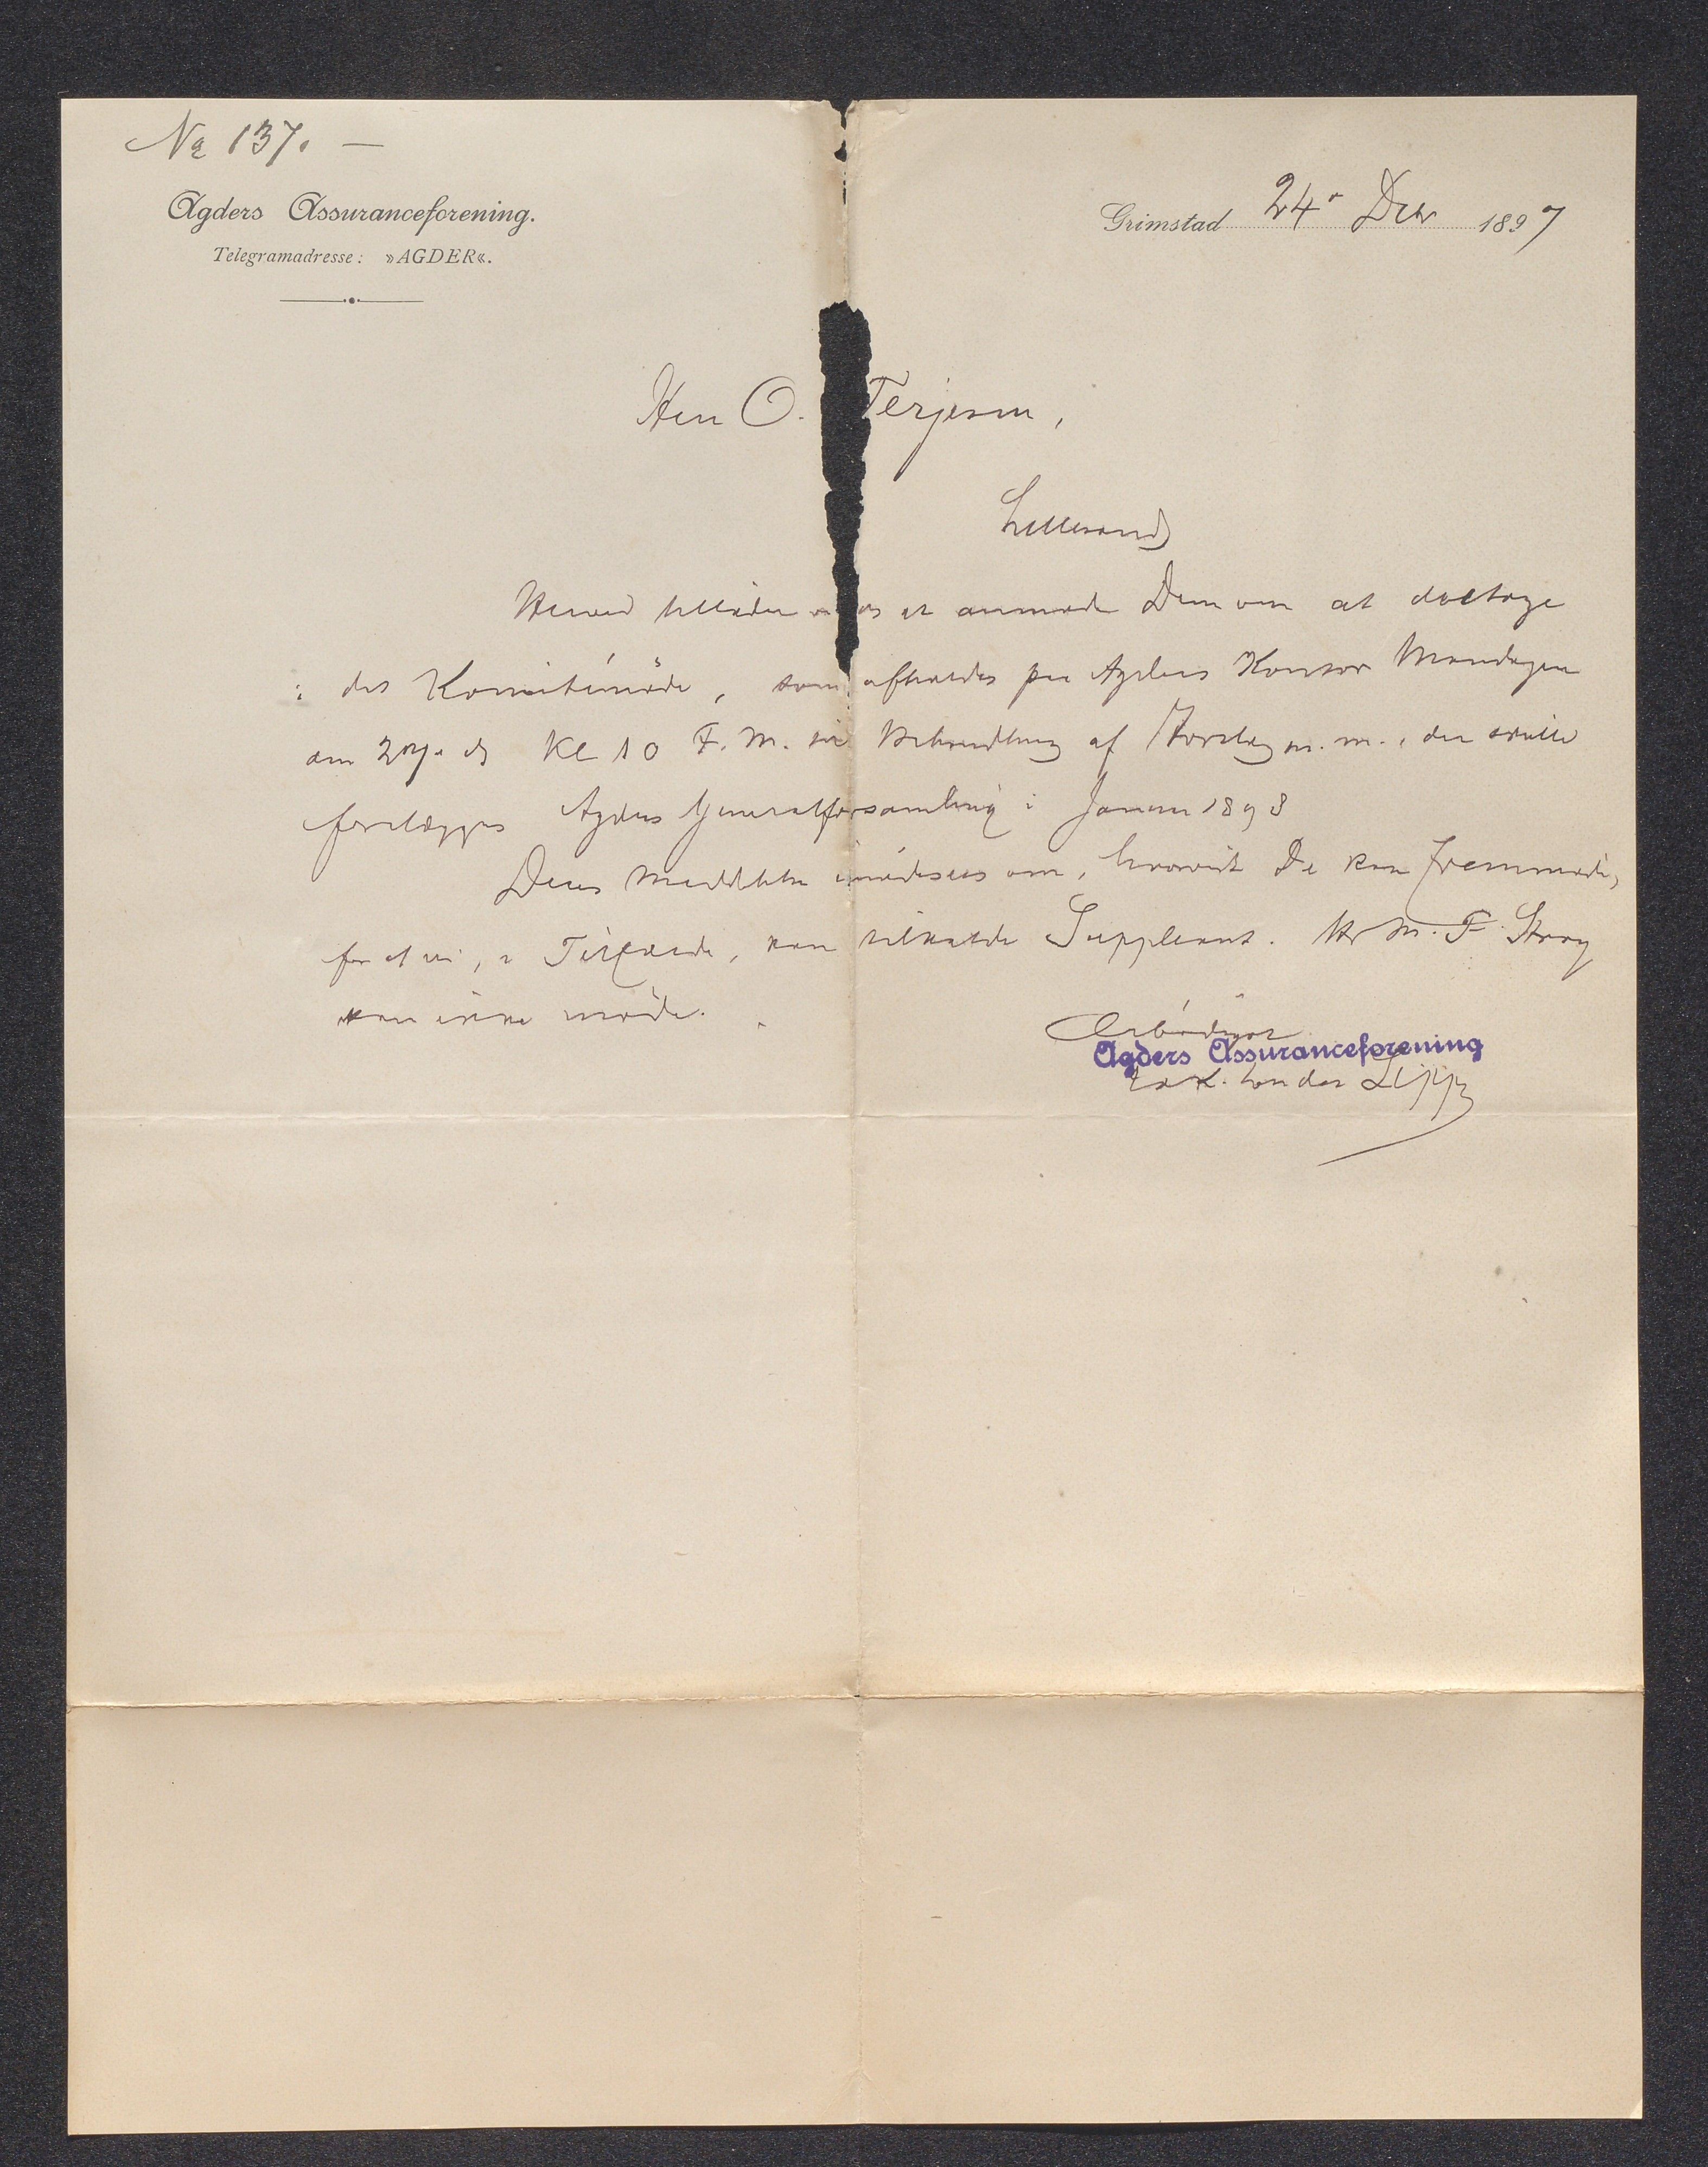 No 137. —
Agders Assuranceforening.
Telegramadresse: »AGDER«.
Grimstad 24' Decbr 1897
Herr O. Terjesen,
Lillesand
Herved tillader vi os at anmode Dem om at deeltage
i det Komitémøde, som afholdes paa Agders Kontor Mandagen
den 27. ds Kl 10 F.M. til Behandling af Forslag m.m., der skulle
forelægges Agders Generalforsamling i Januar 1898
Deres Meddelelse imødesees om, hvorvidt De kan fremmøde,
for at vi, i Tilfælde, kan tilkalde Suppleant. Hr M. F. Stray
kan ikke møde.
Ærbødigst
Agders Assuranceforening
von der Lippe